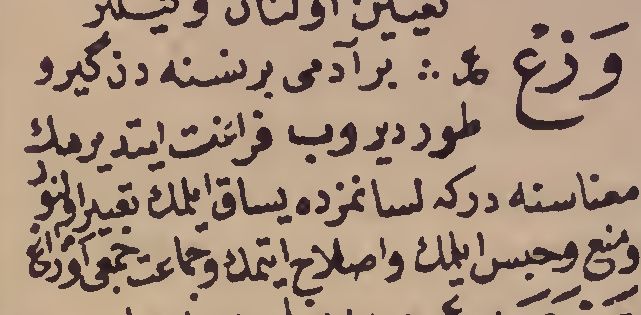 تعيين اولنان وكيللر
وَزْع ع :· بر آدمى بر نسنه دن كيرو
طوردیروب فراغت ایتدیرمك
معناسنه دركه لسانمزده یساق ایلمك تعبیر اولنور
ومنع وحبس ایلمك واصلاح ایتمك وجماعت جمعی اوزاع